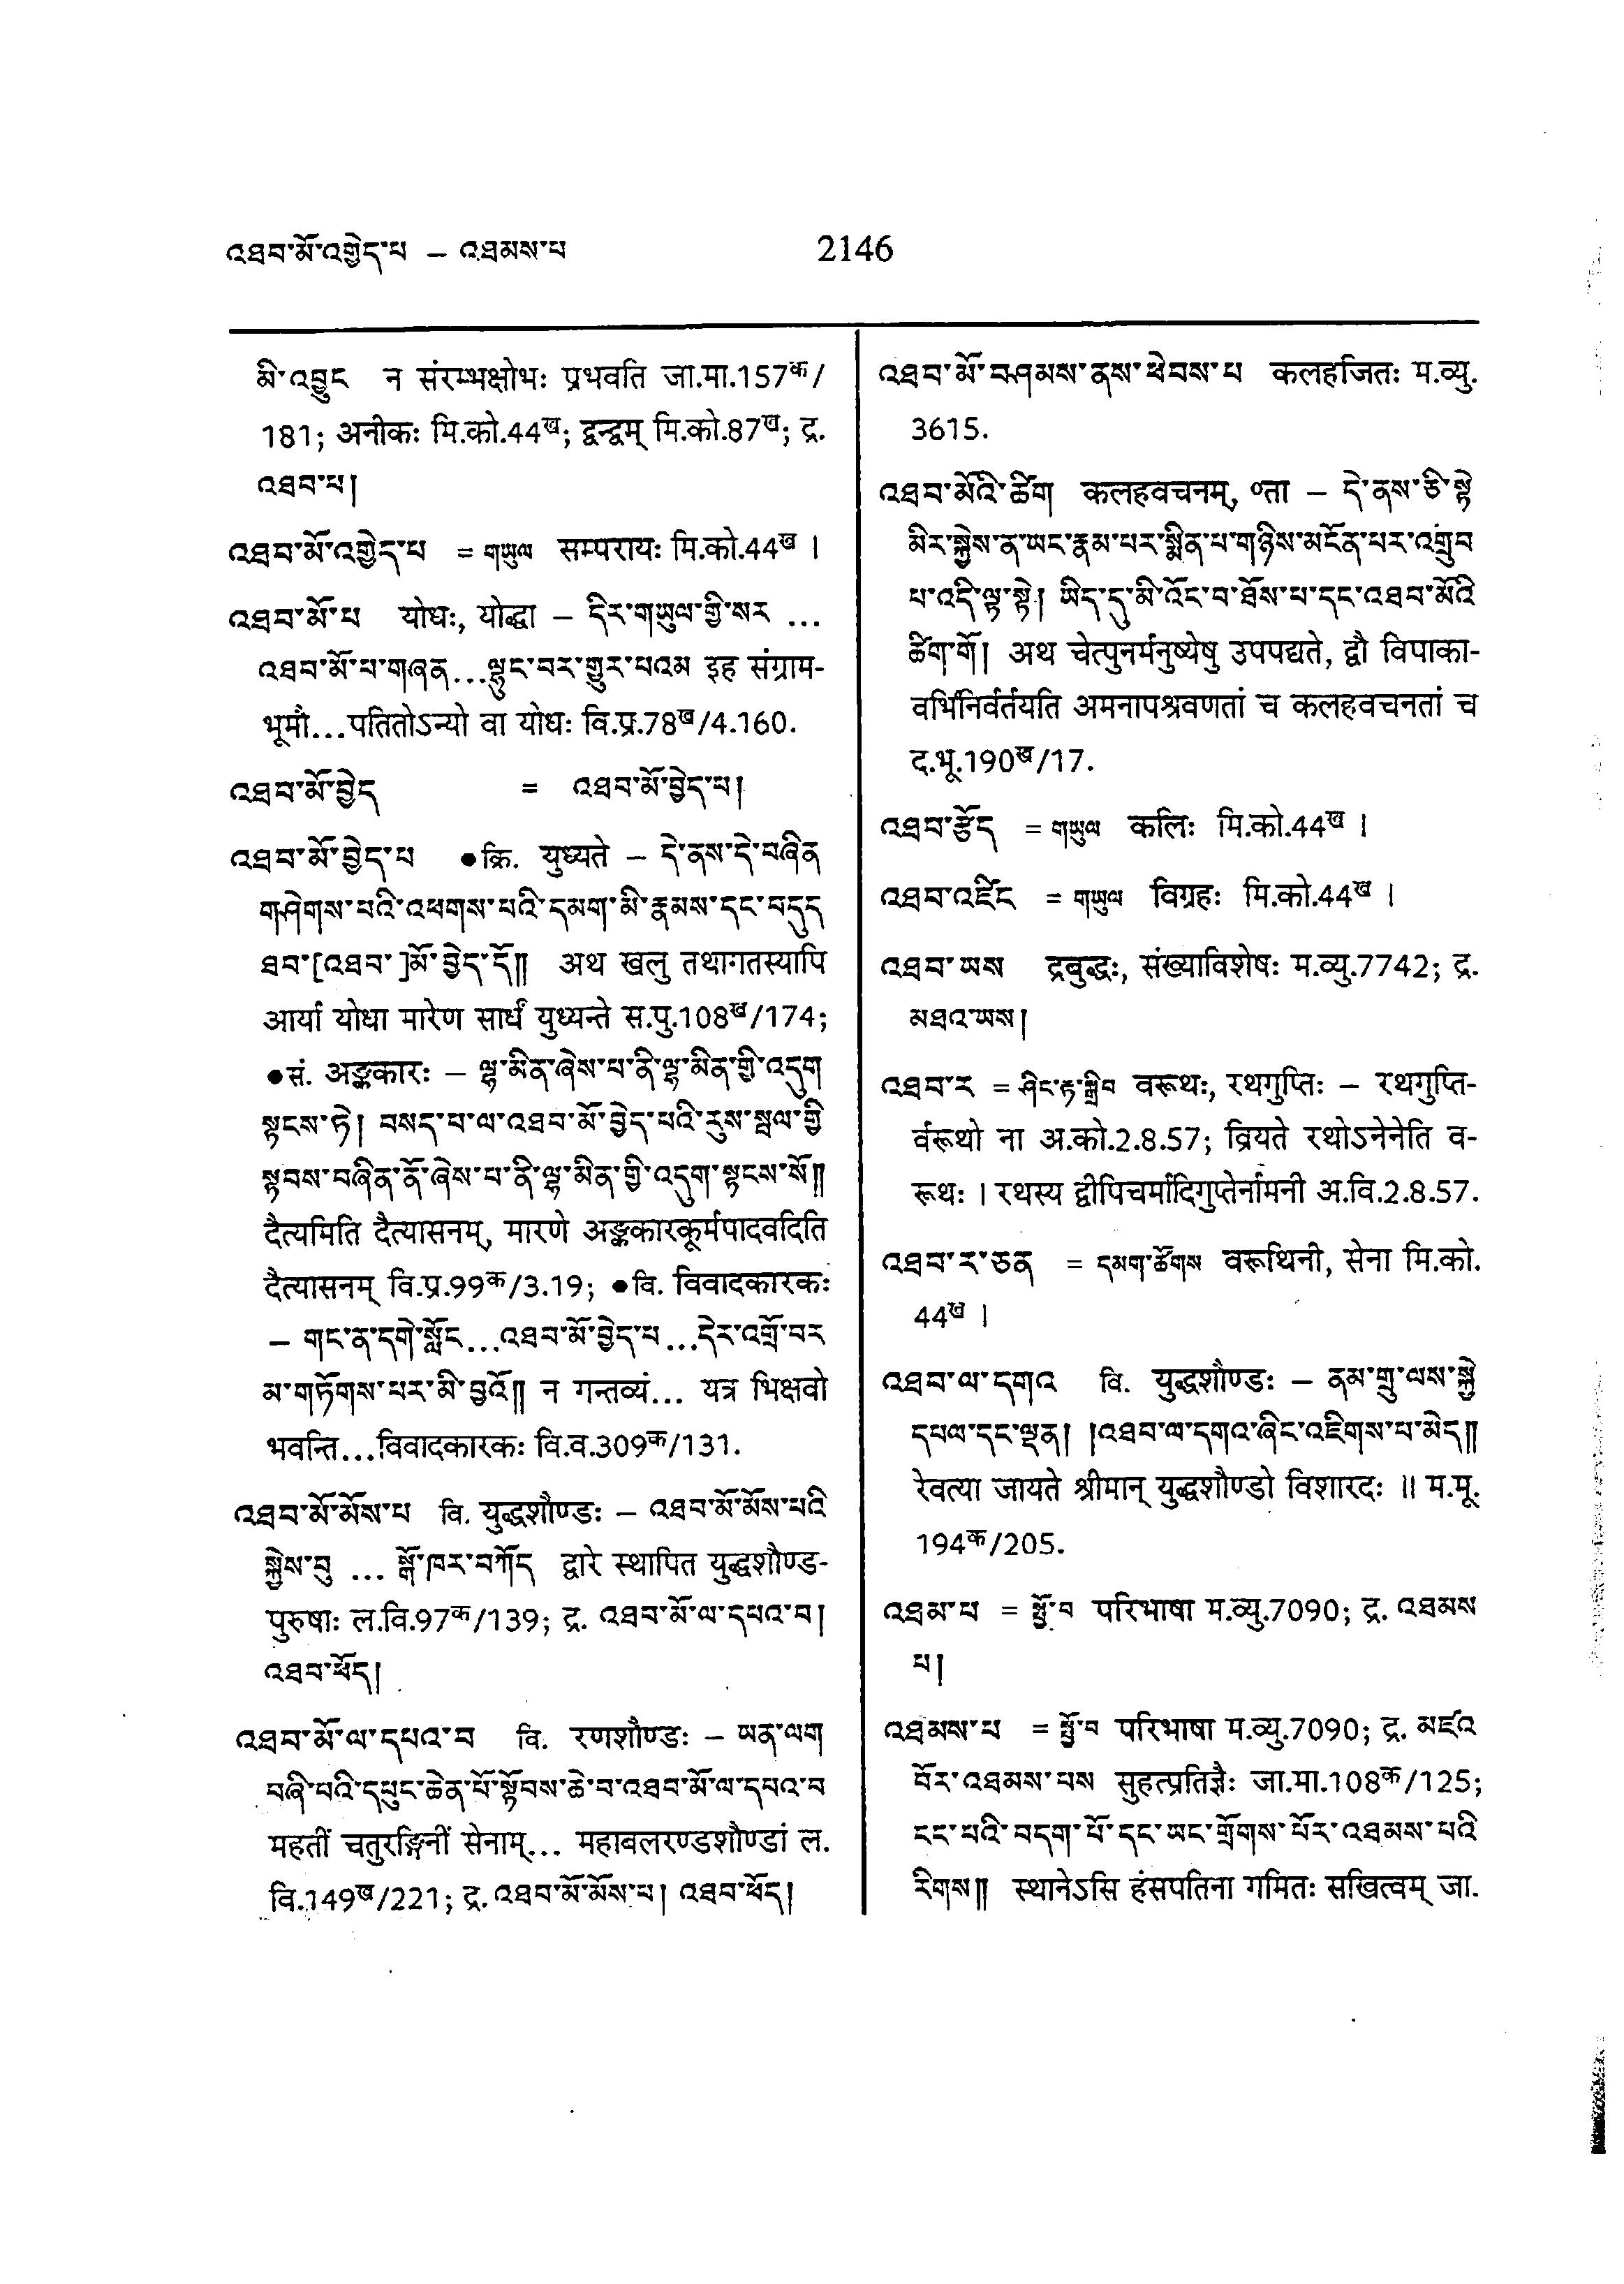 འཐབ་མོ་འགྱེད་པ – འཐམས་པ
2146
མི་འབྱུང न संरम्भक्षोभः प्रभवति जा.मा.157क/
181; अनीकः मि.को.44ख; द्वन्द्वम् मि.को.87ख; द्र.
འཐབ་པ།
འཐབ་མོ་འགྱེད་པ = གཡུལ सम्परायः मि.को.44ख ।
འཐབ་མོ་པ योधः, योद्धा – དིར་གཡུལ་གྱི་སར ...
འཐབ་མོ་པ་གཞན...ལྷུང་བར་གྱུར་པའམ इह संग्राम-
भूमौ...पतितोऽन्यो वा योधः वि.प्र.78ख/4.160.
འཐབ་མོ་བྱེད = འཐབ་མོ་བྱེད་པ།
འཐབ་མོ་བྱེད་པ ●क्रि. युध्यते – དེ་ནས་དེ་བཞིན
གཤེགས་པའི་འཕགས་པའི་དམག་མི་རྣམས་དང་བདུད
ཐབ་[འཐབ་]མོ་བྱེད་དོ༎ अथ खलु तथागतस्यापि
आर्या योधा मारेण सार्धं युध्यन्ते स.पु.108ख/174;
●सं. अङ्ककारः – ལྷ་མིན་ཞེས་པ་ནི་ལྷ་མིན་གྱི་འདུག
སྟངས་ཏེ། བསད་པ་ལ་འཐབ་མོ་བྱེད་པའི་རུས་སྦལ་གྱི
སྟབས་བཞིན་ནོ་ཞེས་པ་ནི་ལྷ་མིན་གྱི་འདུག་སྟངས་སོ༎
दैत्यमिति दैत्यासनम्, मारणे अङ्ककारकूर्मपादवदिति
दैत्यासनम् वि.प्र.99क/3.19; ●वि. विवादकारकः
– གང་ན་དགེ་སློང...འཐབ་མོ་བྱེད་པ...དེར་འགྲོ་བར
མ་གཏོགས་པར་མི་བྱའོ༎ न गन्तव्यं... यत्र भिक्षवो
भवन्ति...विवादकारकः वि.व.309क/131.
འཐབ་མོ་མོས་པ वि. युद्धशौण्डः – འཐབ་མོ་མོས་པའི
སྐྱེས་བུ ... སྒོ་ཁར་བཀོད द्वारे स्थापित युद्धशौण्ड-
पुरुषाः ल.वि.97क/139; द्र. འཐབ་མོ་ལ་དཔའ་བ།
འཐབ་ཕོད།
འཐབ་མོ་ལ་དཔའ་བ वि. रणशौण्डः – ཡན་ལག
བཞི་པའི་དཔུང་ཆེན་པོ་སྟོབས་ཆེ་བ་འཐབ་མོ་ལ་དཔའ་བ
महतीं चतुरङ्गिनीं सेनाम्... महाबलरण्डशौण्डां ल.
वि.149ख/221; द्र. འཐབ་མོ་མོས་པ། འཐབ་ཕོད།
འཐབ་མོ་བཤམས་ནས་ཕེབས་པ कलहजितः म.व्यु.
3615.
འཐབ་མོའི་ཚིག कलहवचनम्, ०ता – དེ་ནས་ཅི་སྟེ
མིར་སྐྱེས་ན་ཡང་རྣམ་པར་སྨིན་པ་གཉིས་མངོན་པར་འགྲུབ
པ་འདི་ལྟ་སྟེ། ཡིད་དུ་མི་འོང་བ་ཐོས་པ་དང་འཐབ་མོའི
ཚིག་གོ། अथ चेत्पुनर्मनुष्येषु उपपद्यते, द्वौ विपाका-
वभिनिर्वर्तयति अमनापश्रवणतां च कलहवचनतां च
द.भू.190ख/17.
འཐབ་རྩོད = གཡུལ कलिः मि.को.44ख ।
འཐབ་འཛིང = གཡུལ विग्रहः मि.को.44ख ।
འཐབ་ཡས द्रबुद्धः, संख्याविशेषः म.व्यु.7742; द्र.
མཐའ་ཡས།
འཐབ་ར = ཤིང་རྟ་སྒྲིབ वरूथः, रथगुप्तिः – रथगुप्ति-
र्वरूथो ना अ.को.2.8.57; व्रियते रथोऽनेनेति व-
रूथः । रथस्य द्वीपिचर्मादिगुप्तेर्नामनी अ.वि.2.8.57.
འཐབ་ར་ཅན = དམག་ཚོགས वरूथिनी, सेना मि.को.
44ख ।
འཐབ་ལ་དགའ वि. युद्धशौण्डः – ནམ་གྲུ་ལས་སྐྱེ
དཔལ་དང་ལྡན། །འཐབ་ལ་དགའ་ཞིང་འཇིགས་པ་མེད༎
रेवत्या जायते श्रीमान् युद्धशौण्डो विशारदः ॥ म.मू.
194क/205.
འཐམ་པ = སྤྱོ་བ परिभाषा म.व्यु.7090; द्र. འཐམས
པ།
འཐམས་པ = སྤྱོ་བ परिभाषा म.व्यु.7090; द्र. མཛའ
བོར་འཐམས་པས सुहृत्प्रतिज्ञैः जा.मा.108क/125;
ངང་པའི་བདག་པོ་དང་ཡང་གྲོགས་པོར་འཐམས་པའི
རིགས༎ स्थानेऽसि हंसपतिना गमितः सखित्वम् जा.